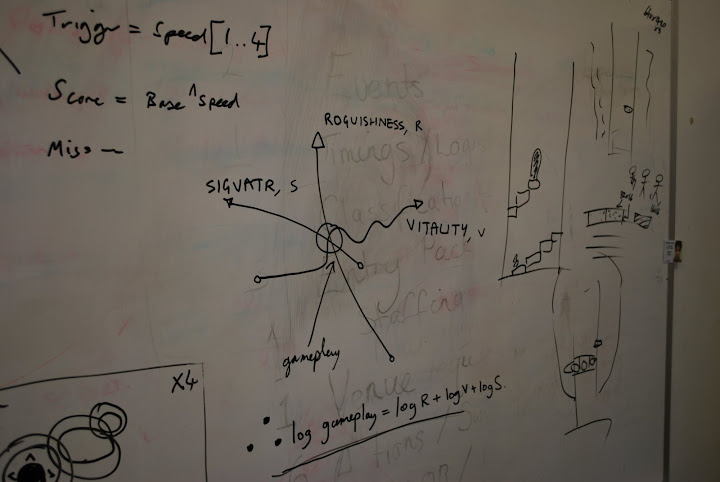 Trigger = Speed [1..4]
Score = Base ^ Speed
Miss —
ROGUISHNESS, R
SIGVATR, S
VITALITY, V
gameplay
∴ log gameplay = log R + log V + log S.
X4
Events
Timings / Logis
Classification
Entry Pack
Staffing
Venue